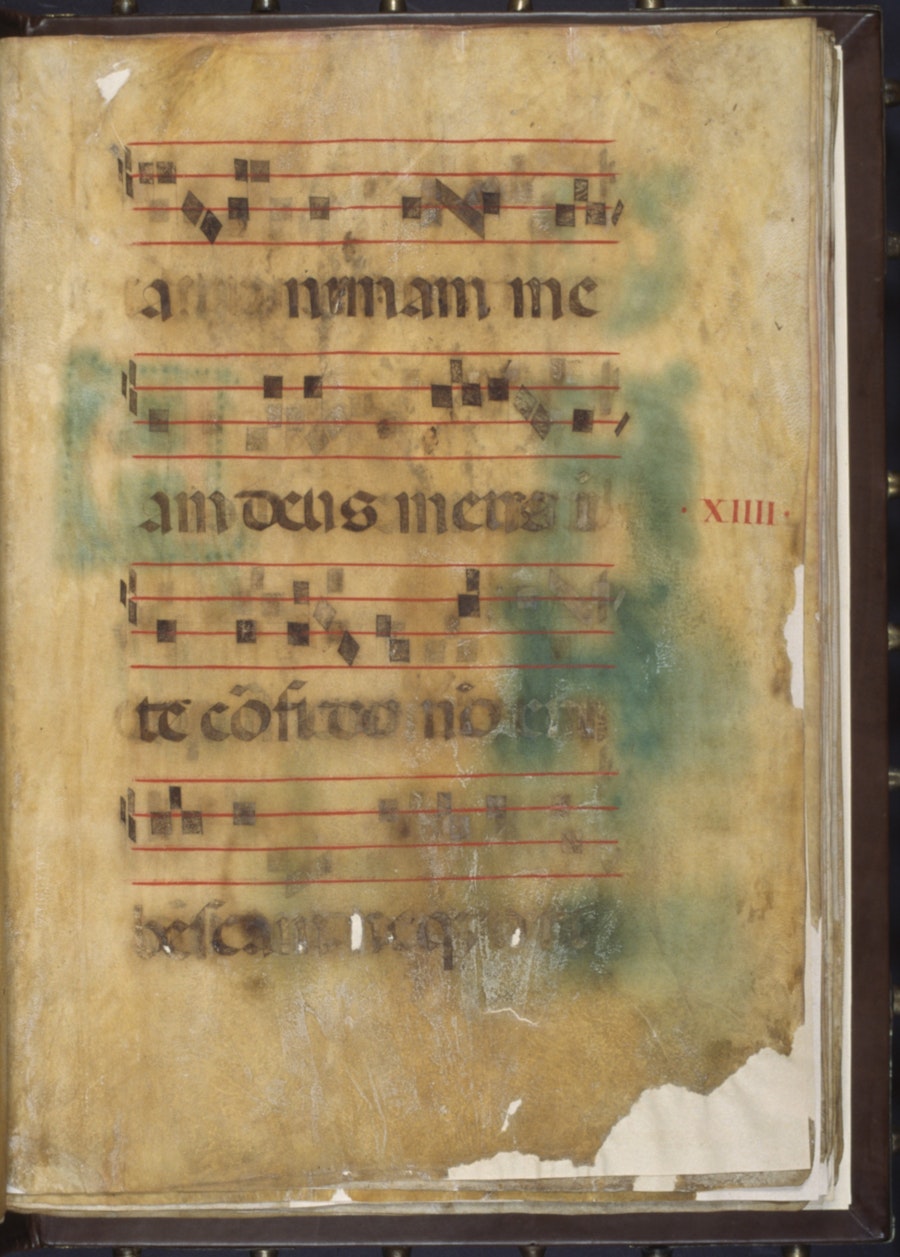 a nimam me
am deus meus i
te cōfido nō eru
bescam neqȝ
XIIII